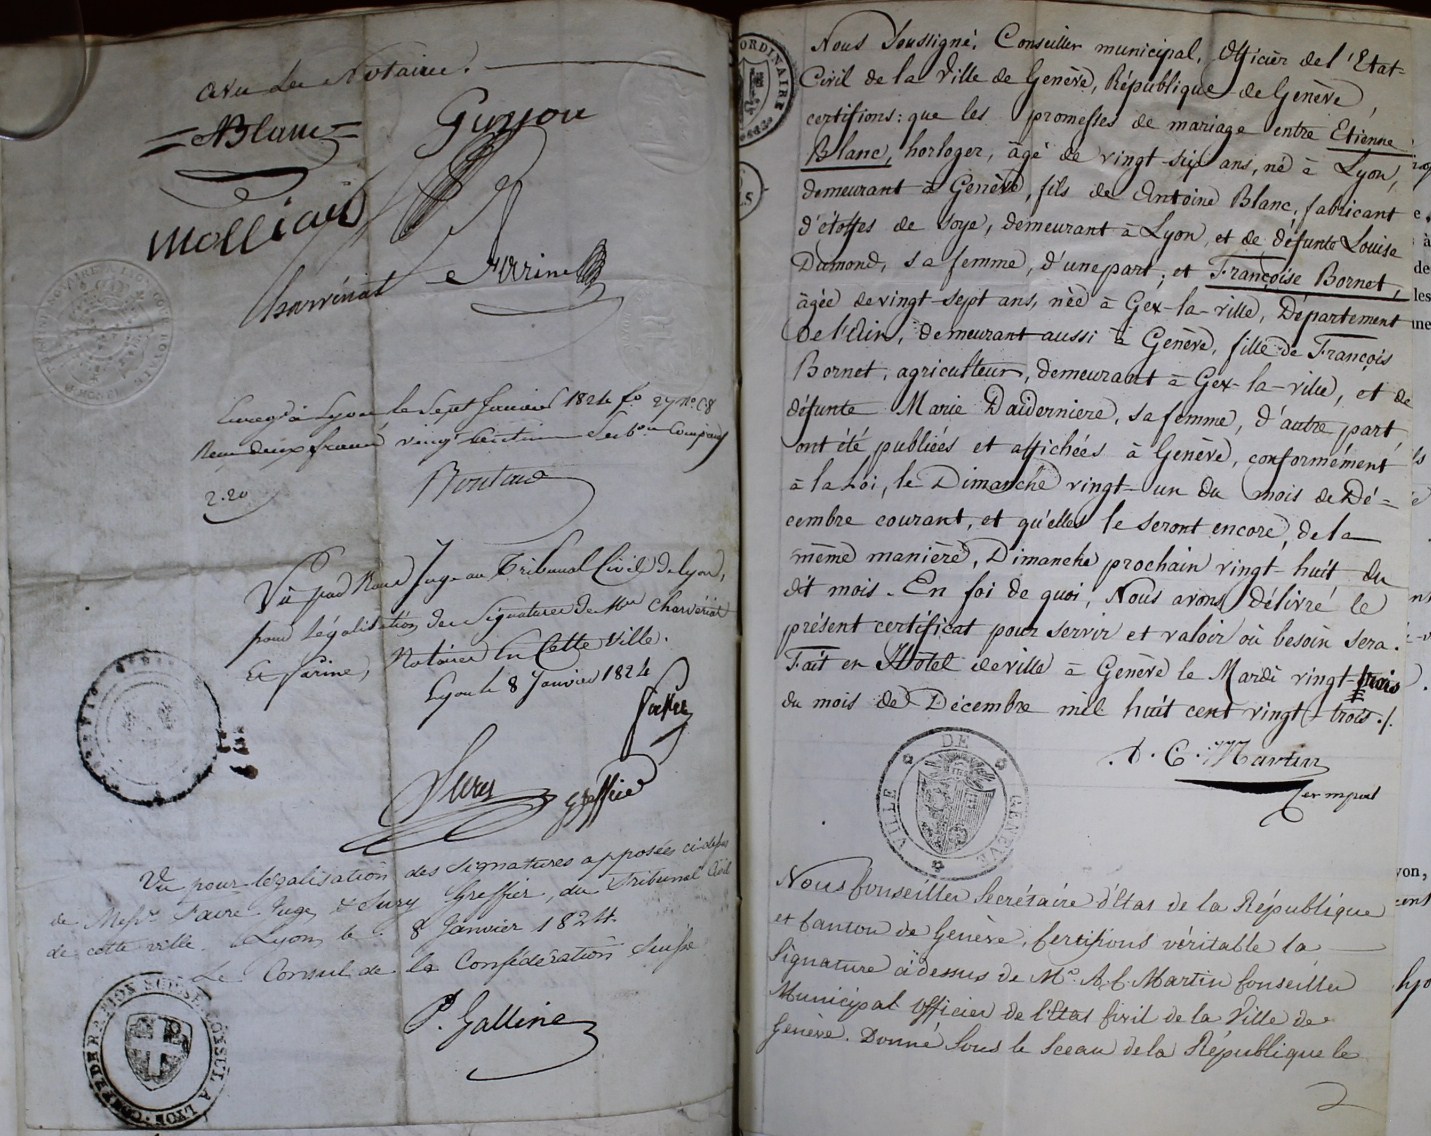 avec les Notaires.
=ABlanc=
Guyou
Molliard
Charvériat
Farine
Enreg.é à Lyon le Sept Janvier 1824 fo 27 No C8
Reçu deux francs vingt centimes
2.20
Vû par Nous Juge au Tribunal Civil de Lyon,
pour Légalisation des Signatures de Mes Charvériat
Et Farine, Notaires En Cette Ville.
Lyon le 8 Janvier 1824
Favre
Sury
greffier
Vu pour légalisation des signatures apposées ci-dessus
de Mess.rs Favre Juge & Sury Greffier, du Tribunal Civil
de cette ville. Lyon le 8 Janvier 1824.
Le Consul de la Confédération Suisse
P. Galline
CONFEDERATION SUISSE. CONSUL A LYON
ORDINAIRE
Nous Soussigné, Conseiller municipal, Officier de l'Etat-
Civil de la Ville de Genève, République de Genève,
certifions: que les promesses de mariage entre Etienne
Blanc, horloger, âgé de vingt-six ans, né à Lyon,
demeurant à Genève, fils de Antoine Blanc, fabricant
d'étoffes de soye, demeurant à Lyon, et de défunte Louise
Damond, sa femme, d'une part; et Françoise Bornet,
âgée de vingt-sept ans, née à Gex-la-ville, Département
de l'Ain, demeurant aussi à Genève, fille de François
Bornet, agriculteur, demeurant à Gex-la-ville, et de
défunte Marie Daiderniere, sa femme, d'autre part,
ont été publiées et affichées à Genève, conformément
à la Loi, le Dimanche vingt-un du mois de Dé=
cembre courant, et qu'elles le seront encore, de la
même manière, Dimanche prochain vingt-huit du
dit mois. En foi de quoi, Nous avons délivré le
présent certificat pour servir et valoir où besoin sera.
Fait en Hôtel de ville à Genève le Mardi vingt-trois
du mois de Décembre mil huit cent vingt-trois./.
A. C. Martin
VILLE DE GENEVE
Nous Conseiller Secrétaire d'Etat de la République
et Canton de Genève, Certifions véritable la
Signature ci dessus de Mr. A. C. Martin Conseiller
Municipal Officier de l'Etat Civil de la Ville de
Genève. Donné Sous le Sceau de la République le